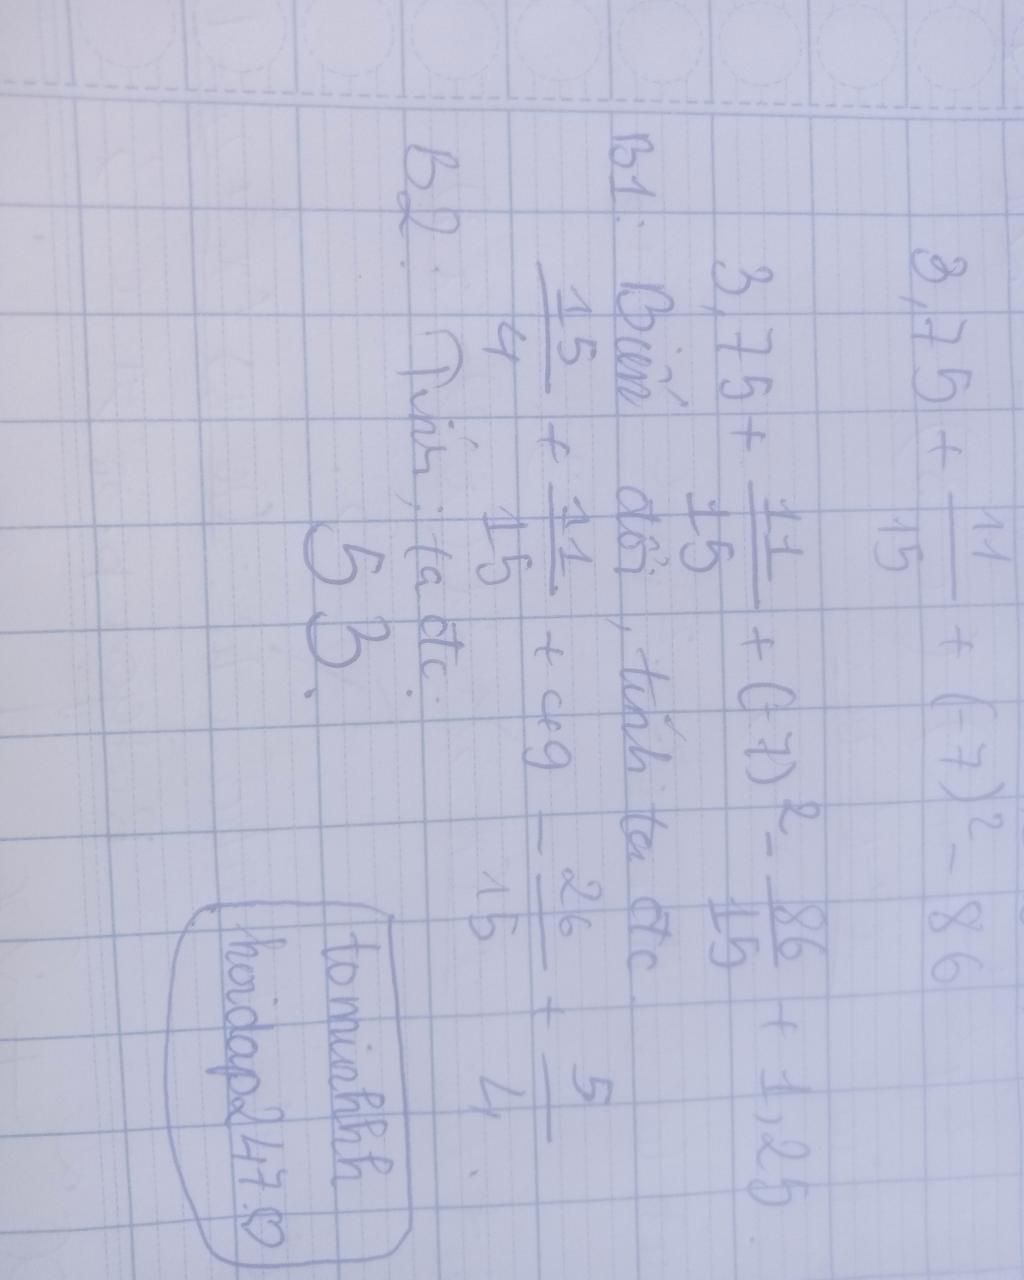 3,75 + 11/15 + (-7)² - 86
3,75 + 11/15 + (-7)² - 86/15 + 1,25
B1: Biến đổi, tính ta đc
15/4 + 11/15 + 49 - 26/15 + 5/4
B2: Tính, ta đc.
53.
tominhhh
hoidap247.